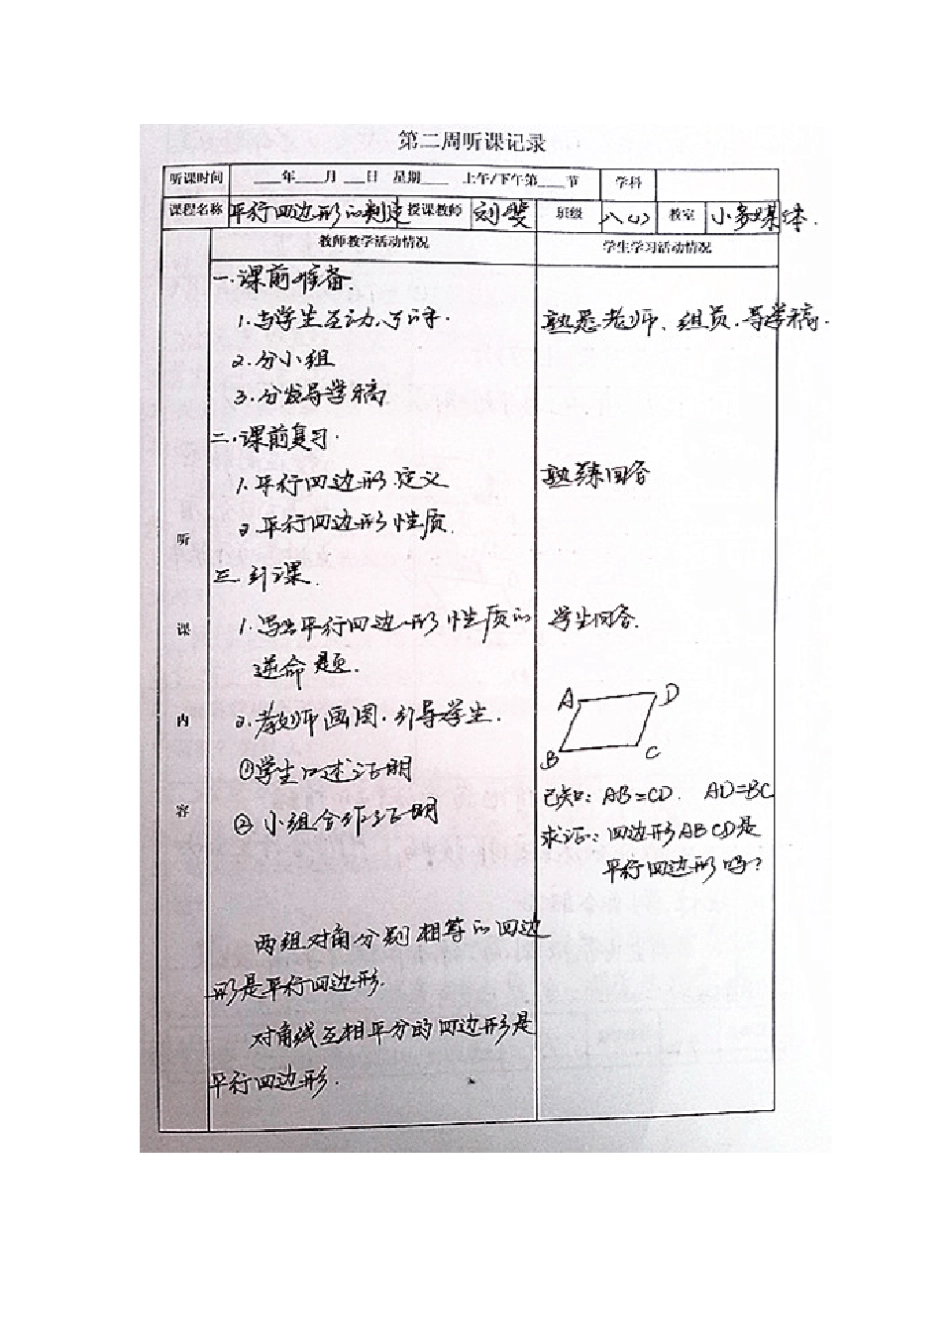 第二周听课记录
听课时间 ___年___月___日 星期___ 上午/下午第___节 学科
课程名称 平行四边形的判定 授课教师 刘雯 班级 八(4) 教室 小多媒体.
教师教学活动情况 学生学习活动情况
听课内容
一.课前准备.
1.与学生互动、
熟悉老师、组员、导学稿.
2.分小组
3.分发导学稿
二.课前复习.
1.平行四边形定义
熟练回答
2.平行四边形性质.
三.引课.
1.写出平行四边形性质的
学生回答.
逆命题.
2.教师画图.引导学生.
①学生口述证明
②小组合作证明
A D
B C
已知: AB=CD. AD=BC
求证: 四边形ABCD是
平行四边形吗?
两组对角分别相等的四边
形是平行四边形.
对角线互相平分的四边形是
平行四边形.